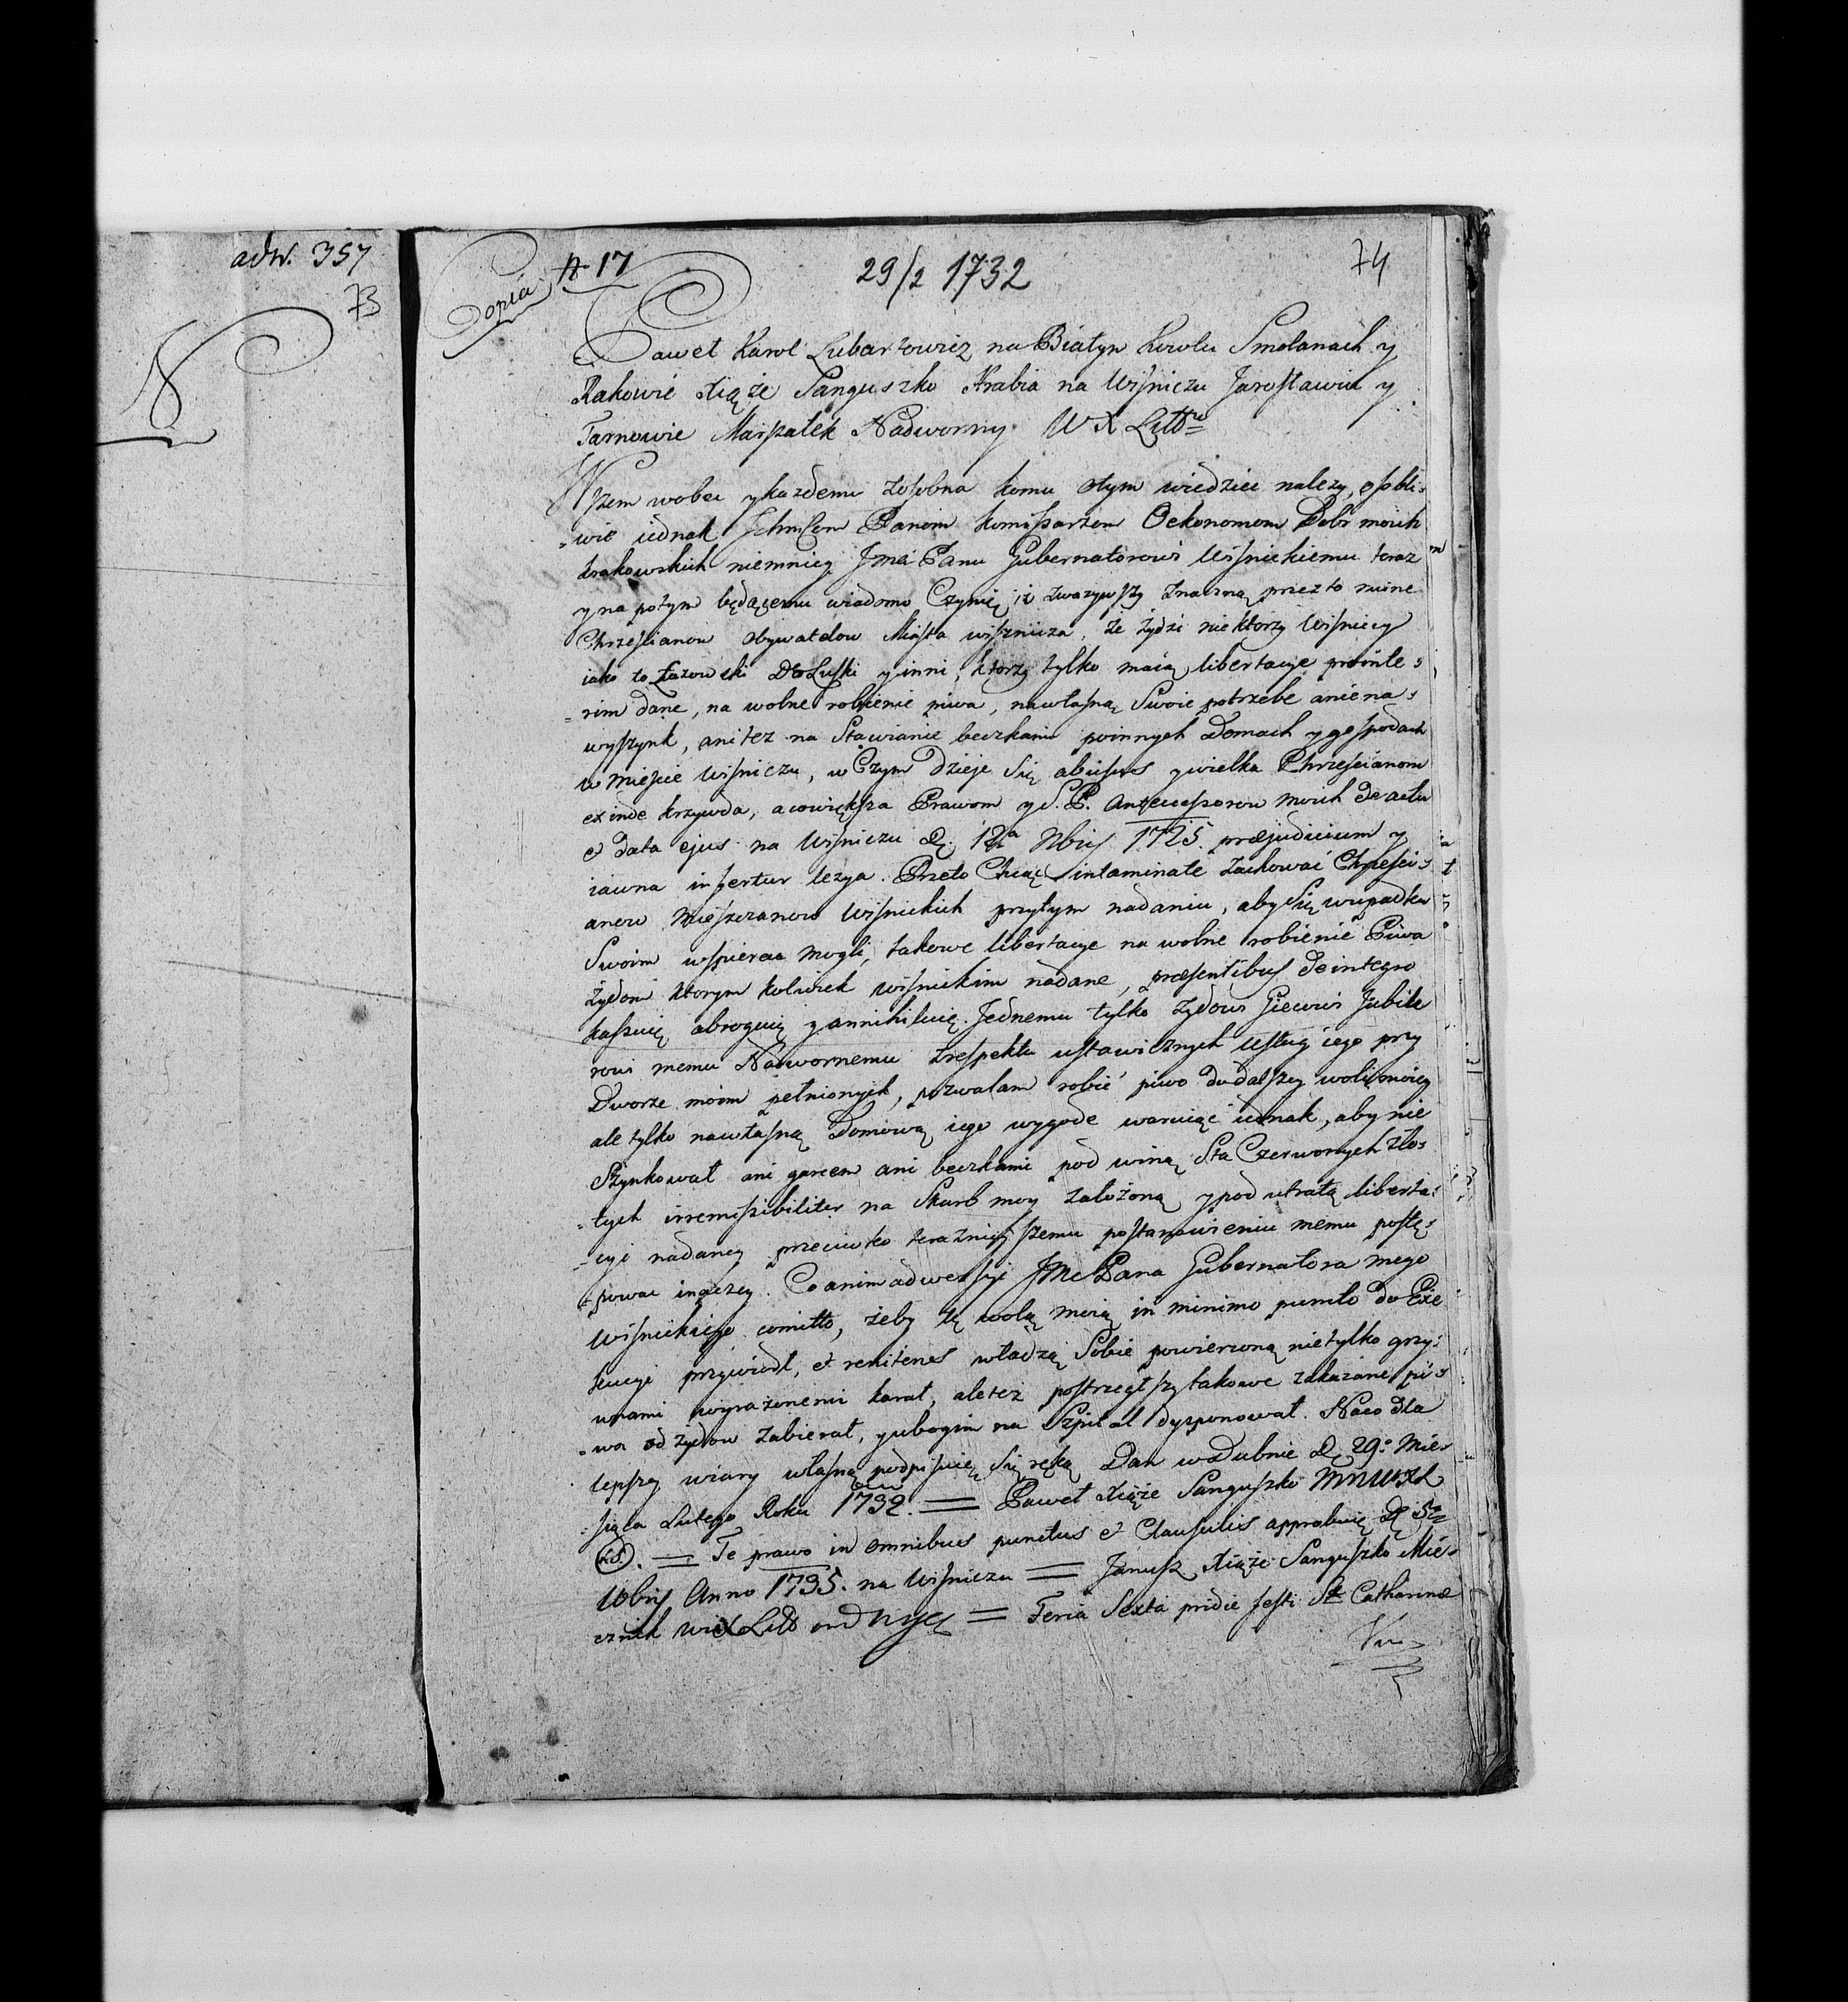 adw. 357
73
Copia
N 17
29/2 1732
74
Pawel Karol Lubartowicz na Białym Kowlu Smolanach y
Rakowie Xiąże Sanguszko Hrabia na Wiśniczu Jarosławiu y
Tarnowie Marszałek Nadworny W X Litt
Wszem wobec y każdemu zosobna komu otym wiedzieć należy, osobli:
=wie iednak Ichmściom Panom Komissarzom Oekonomom Dobr moich
krakowskich niemniey Jmći Panu Gubernatorowi Wiśnickiemu teraz
y na potym będącemu wiadomo Czynię, iż zważywszy znaczną przez to ruinę
Chrześcianow obywatelow Miasta wisznicza, że żydzi niektorzy Wisniccy
iako to Łazowski Dołuski y inni, ktorzy tylko maią libertacye prointe:
=rim dane, na wolne robienie piwa, na własną Swoie potrzebe anie na:
wyszynk, ani tez na Stawianie beczkami poinnych Domach y gospodach
w mieście Wiśniczu, w Czym dzieje Się abusus y wielka Chrześcianom
exinde krzywda, a co większa Prawom y S. P. Antecessorow moich de actu
et data ejus na Wiśniczu D. 12a Nbris 1725. praejudicium y
iawna infertur lezya. Przeto Chcąc intaminate zachować Chrześci:
anow Mieszczanow Wiśnickich przytym nadaniu, aby Się w upadku
Swoim wspierać mogli, takowe libertacye na wolne robienie Piwa
Żydom ktorym kolwiek wiśnickim nadane, praesentibus de integro
kassuię abroguię y annihiluię. Jednemu tylko Żydowi Giecowi Jubile
rowi memu Nadwornemu z respektu ustawicznych usług iego przy
Dworze moim pełnionych, pozwalam robić piwo do dalszey woli moiey
ale tylko na własną Domową iego wygodę waruiąc iednak, aby nie
Szynkował ani garcem ani beczkami pod winą Sta Czerwonych Zło:
=tych irremissibiliter na Skarb moy założoną y pod utratą liberta:
=cyi nadaney przeciwko teraznieyszemu postanowieniu memu postę:
=pować inaczey. Co animadwersyi JMc Pana Gubernatora mego
Wiśnickiego comitto, żeby tę wolą moią in minimo puncto do Exe
kucyi przywiodł, et renitenes władzą Sobie powierzoną nietylko grzy:
wnami wyrażonemi karał, ale też postrzegłszy takowe zakazane pi:
=wa od żydow zabierał, y ubogim na Szpital dysponował. Na co dla
lepszey wiary własną podpisuię Się ręką Dan w Dubnie D. 29o Mie:
=siąca Lutego Roku 1732. = Paweł Xiąże Sanguszko MNWXL
(LS). = Te prawo in omnibus punctus et Clausulis approbuię D. 5a
Xbris Anno 1735. na Wiśniczu = Janusz Xiąże Sanguszko Mie:
cznik WXLitt = Feria Sexta pridie festi Stae Catharinae